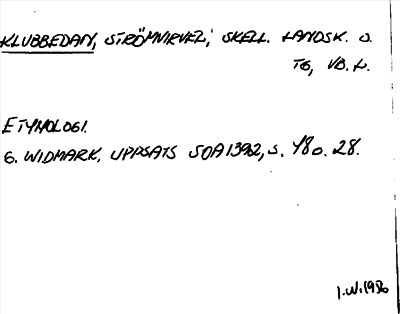 KLUBBEDAN, STRÖMVIRVEL, SKELL. LANDSK. O.
TG, VB. L.
ETYMOLOGI.
G. WIDMARK, UPPSATS SOA 1392, S. 48 o. 28.
I.W. 1986